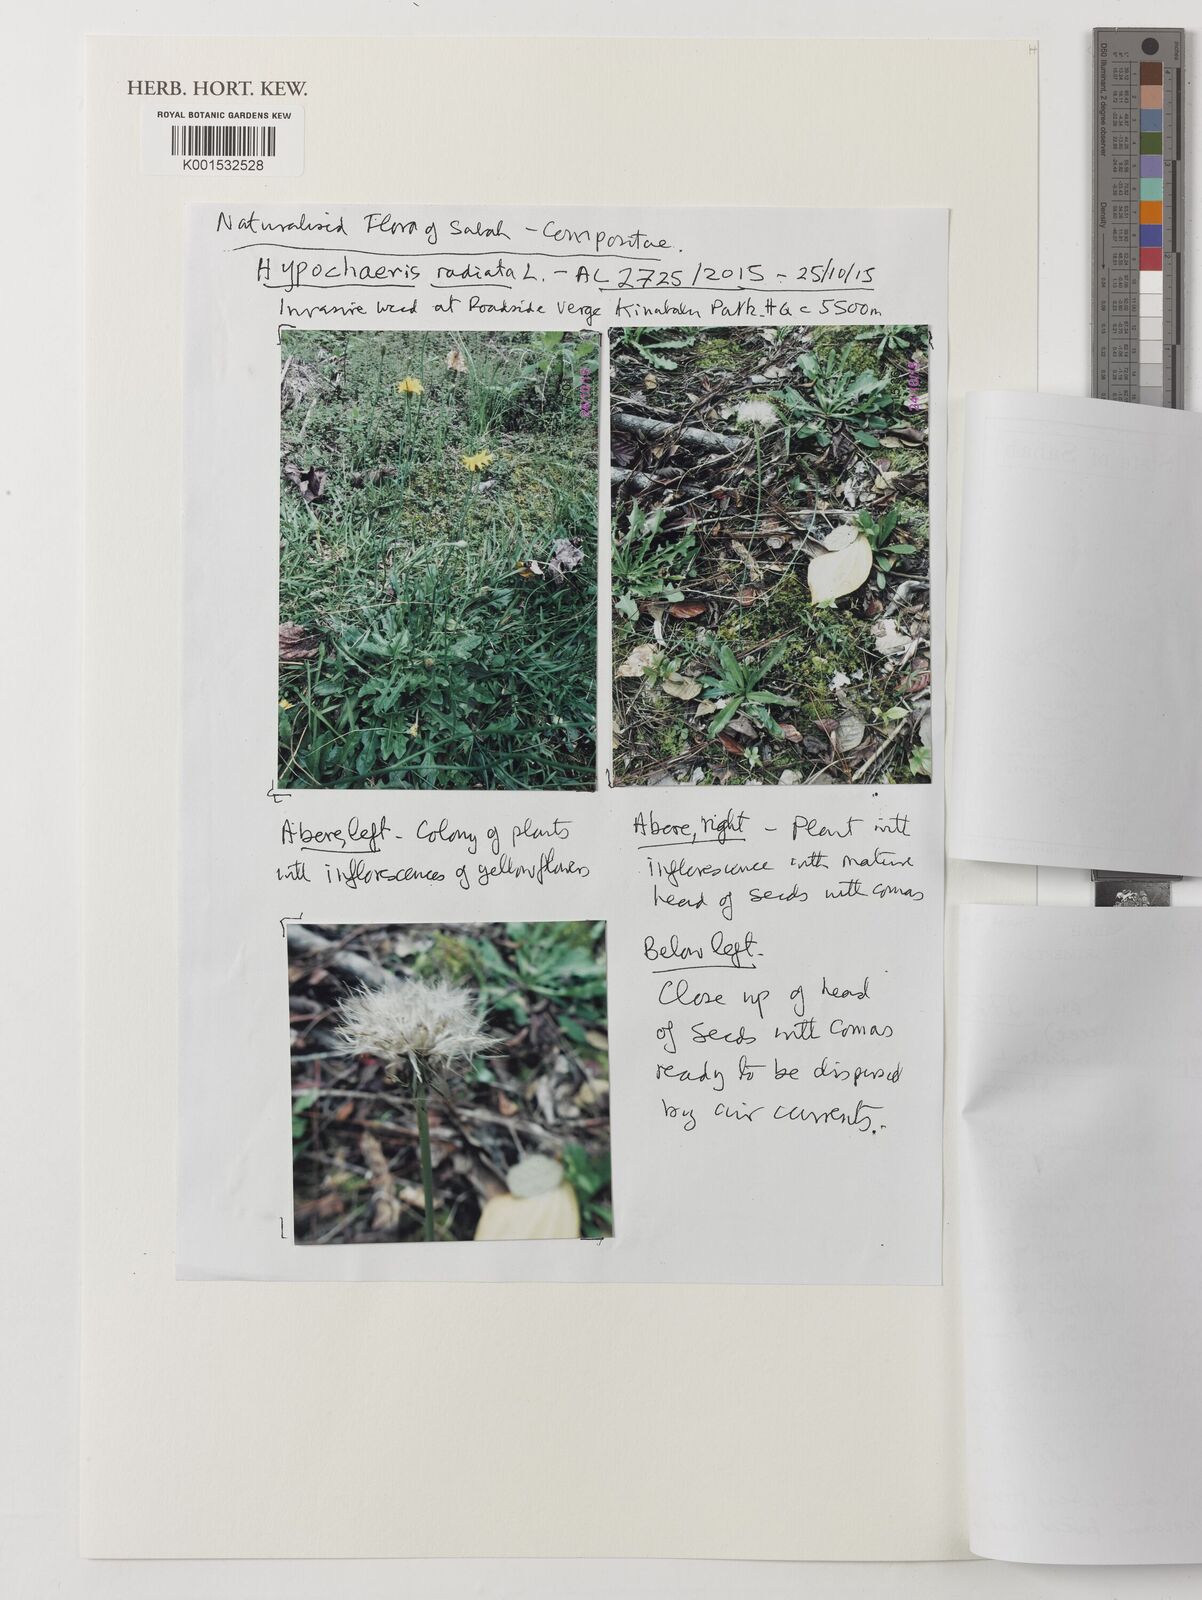 HERB. HORT. KEW.
ROYAL BOTANIC GARDENS KEW
K001532528
Naturalised Flora of Sabah - Compositae.
Hypochaeris radiata L. - AL 2725/2015 - 25/10/15
Invasive weed at Roadside verge Kinabalu Park. HQ c 5500m
Above, left - Colony of plants
with inflorescences of yellow flowers
Above, right - Plant with
inflorescence with mature
head of seeds with comas
Below left -
Close up of head
of seeds with comas
ready to be dispersed
by air currents.